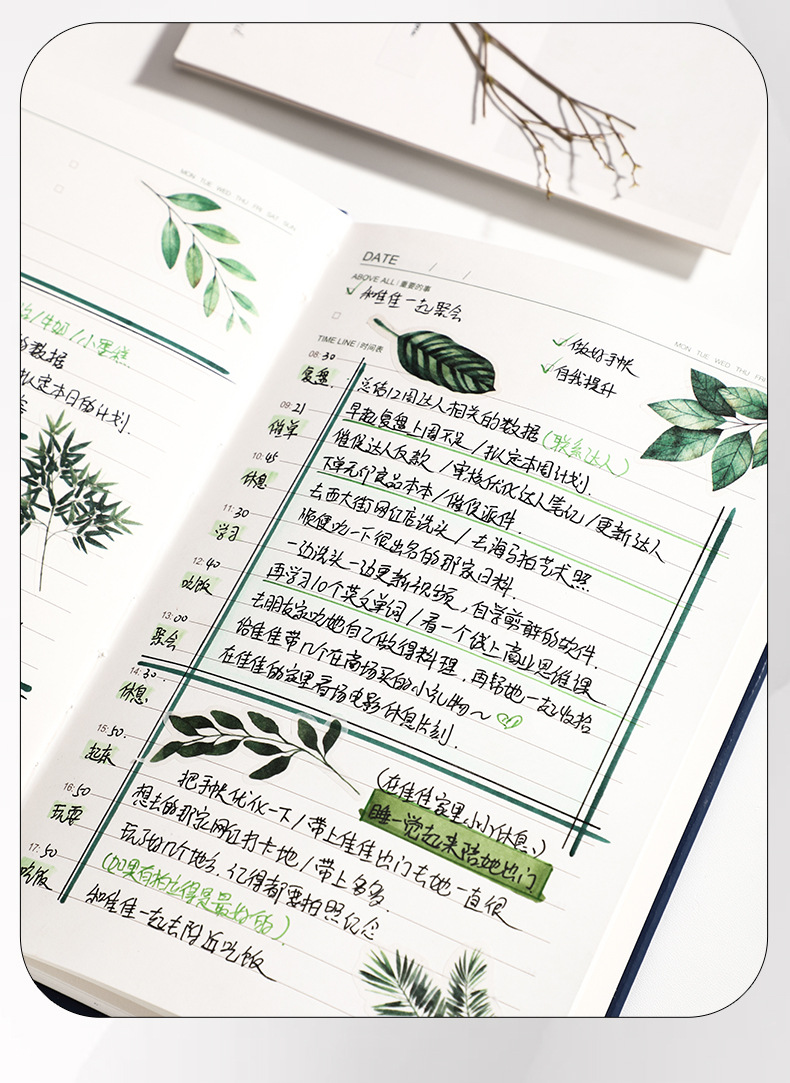 MON TUE WED THU FRI SAT SUN
/牛奶/小蛋糕
数据
拟定本日的计划.
DATE / /
ABOVE ALL | 重要的事
✓ 和佳佳一起聚会
✓做好手帐
✓自我提升
MON TUE WED THU FRI
TIME LINE | 时间表
08:30
复盘
总结12周达人相关的数据(联系达人)
09:21
催单
早起复盘上周不足/拟定本周计划.
10:45
休息
催促达人反款/审核优化达人笔记/更新达人
11:30
学习
下单无价良品本本/催促派件.
12:40
吃饭
去西大街网红店洗头/去海马拍艺术照
13:00
聚会
顺便吃一下很出名的那家日料.
14:30
休息
一边洗头一边更新视频,自学剪辑的软件.
15:50.
起床
再学习10个英文单词/看一个线上商业思维课
16:50
玩耍
去朋友家吃她自己做得料理,再帮她一起收拾
17:50
吃饭
给佳佳带几个在商场买的小礼物~
在佳佳的家里看场电影休息片刻.
(在佳佳家里小小休息.)
睡一觉起来陪她出门
把手帐优化一下/带上佳佳出门去她一直很
想去的那家网红打卡地/带上多多.
玩了好几个地方.记得都要拍照纪念
(如果有拍立得是最好的)
和佳佳一起去附近吃饭